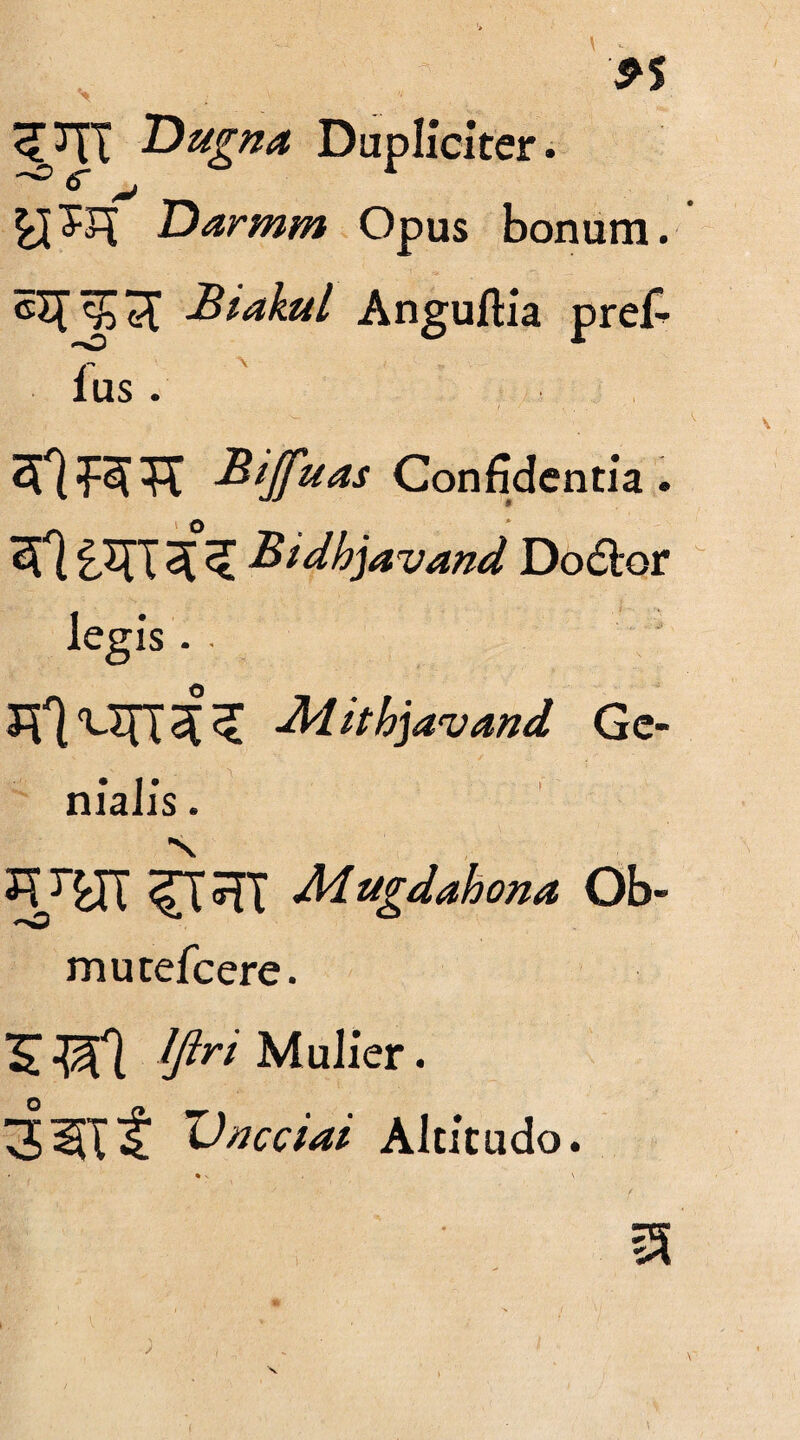 95
दुगृणा Dugna Dupliciter.
धर्म Darmm Opus bonum.
ब्याकुल Biakul Anguſtia preſ-
ſus.
वीस्वास Biſſuas Confidentia.
वीध्यावंद Bidhjavand Doctor
legis.
मीथ्यावंद Mithjavand Ge-
nialis.
मुग्धा होना Mugdahona Ob-
muteſcere.
इस्त्री Iſtri Mulier.
उंचाई Vncciai Altitudo.
अ